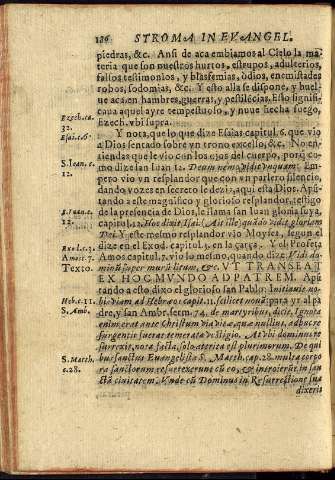 136 STROMA IN EVANGEL.
piedras, &c. Ansi de aca embiamos al Cielo la ma-
teria que son nuestros hurtos, estrupos, adulterios,
falsos testimonios, y blasfemias, odios, enemistades
robos, sodomias, &c. Y esto alla se dispone, y buel-
ue aca en hambres, guerras, y pestilẽcias. Esto signifi-
caua aquel ayre tempestuoso, y nuue hecha fuego,
Ezech. vbi supra.
Ezech. ca.
32.
Y nota, que lo que dize Esaias capitul. 6. que vio
Esai. c. 6.
a Dios sentado sobre vn trono excelso, &c. No en-
tiendas que le vio con ojos del cuerpo, porq̃ co-
mo dize san Iuan 12. Deum nemo vidit vnquam: Em-
S. Ioan. c.
12.
pero vio vn resplandor que con vn parlero silencio,
dando vozes en secreto le dezia, aqui esta Dios. Apũ-
tando a este magnifico y glorioso resplandor, testigo
de la presencia de Dios, le llama san Ioan gloria suya,
S. Ioan. c.
12.
capitul. 12. Hoc dixit Isai. Ait ille, quãdo vidit gloriam
Dei. Y este mesmo resplandor vio Moyses, segun el
dize en el Exod. capitul. 3. en la çarça. Y el Profeta
Exod. c. 3.
Amos capitul. 7. vio lo mesmo, quando dize: Vidi do-
Amos c. 7.
minũ super murũ litum, &c. VT TRANSEAT
Texto.
EX HOC MVNDO AD PATREM. Apũ-
tando a esto dixo el glorioso san Pablo: Initiauit no-
bis viam ad Hebræos capit. 11. scilicet nouã: para yr al pa
Heb. c. 11.
dre, y san Ambr. serm. 74. de martyribus, dicit, Ignota
S. Amb.
enim erat ante Christum via vitæ quæ nullius, adhuc re
surgentis fuerat temerata vestigio. At vbi dominus re
surrexit, nota facta, solo aterica est plurimorum. De qui
bus sanctus Euangelista S. Matth. cap. 28. multa corpo
S. Matth.
c. 28.
ra sanctorum resurrexerunt cũ eo, & introierũt in san-
ctã ciuitatem. Vnde cũ Dominus in Resurrectione sua
dixerit